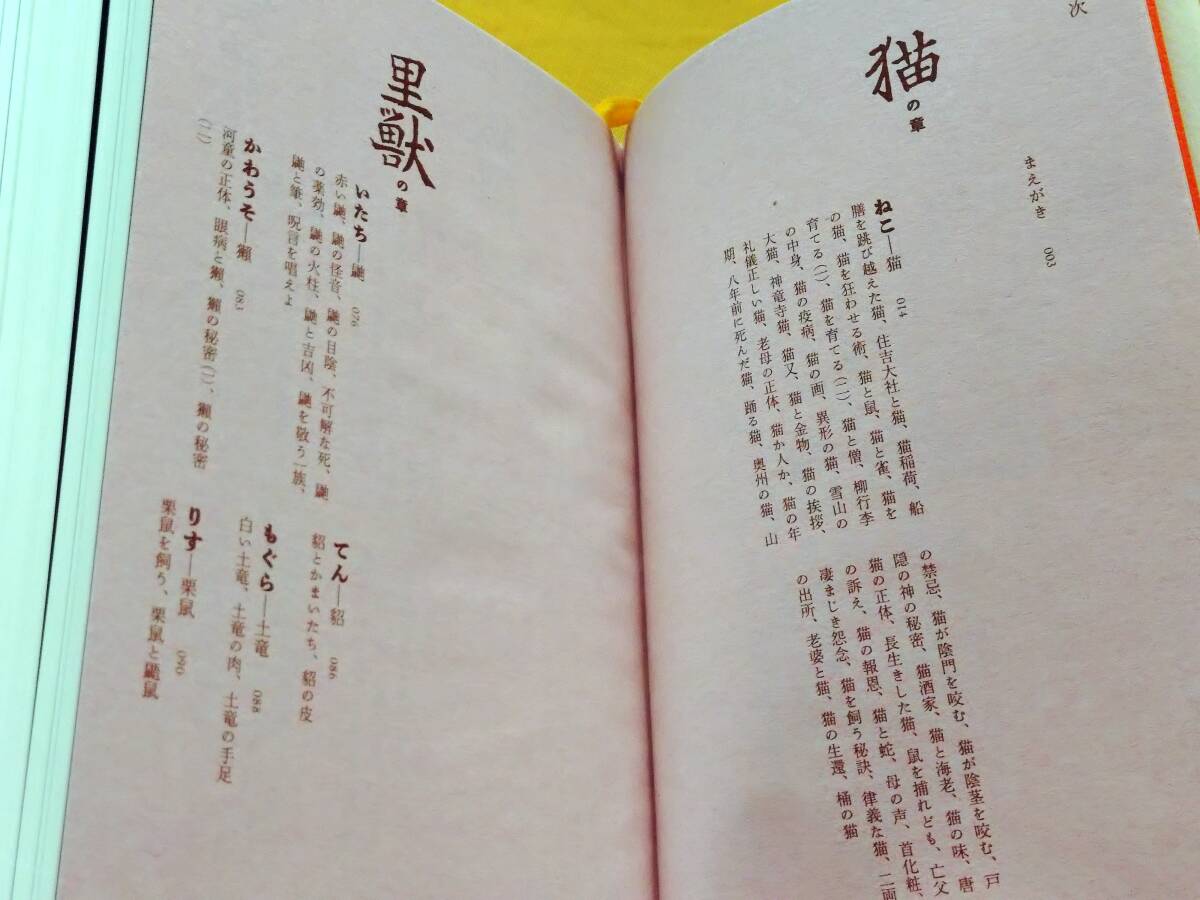 次
まえがき　003
猫の章
ねこ—猫　014
膳を跳び越えた猫、住吉大社と猫、猫稲荷、船
の猫、猫を狂わせる術、猫と鼠、猫と雀、猫を
育てる（一）、猫を育てる（二）、猫と僧、柳行李
の中身、猫の疫病、猫の画、異形の猫、雪山の
大猫、神竜寺猫、猫又、猫と金物、猫の挨拶、
礼儀正しい猫、老母の正体、猫か人か、猫の年
期、八年前に死んだ猫、踊る猫、奥州の猫、山
の禁忌、猫が陰門を咬む、猫が陰茎を咬む、戸
隠の神の秘密、猫酒家、猫と海老、猫の味、唐
猫の正体、長生きした猫、鼠を捕れども、亡父
の訴え、猫の報恩、猫と蛇、母の声、首化粧、
凄まじき怨念、猫を飼う秘訣、律義な猫、二両
の出所、老婆と猫、猫の生還、桶の猫
里獣の章
いたち—鼬　076
赤い鼬、鼬の怪音、鼬の目陰、不可解な死、鼬
の薬効、鼬の火柱、鼬と吉凶、鼬を敬う一族、
鼬と筆、呪言を唱えよ
かわうそ—獺　083
河童の正体、眼病と獺、獺の秘密（一）、獺の秘密
（二）
てん—貂　086
貂とかまいたち、貂の皮
もぐら—土竜　088
白い土竜、土竜の肉、土竜の手足
りす—栗鼠　090
栗鼠を飼う、栗鼠と鼯鼠